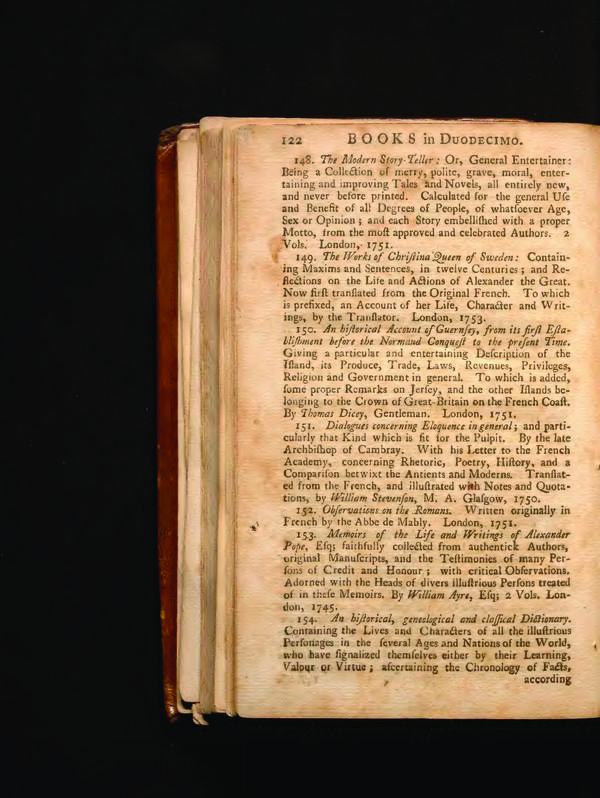 122 BOOKS in DUODECIMO.
148. The Modern Story-Teller: Or, General Entertainer:
Being a Collection of merry, polite, grave, moral, enter-
taining and improving Tales and Novels, all entirely new,
and never before printed. Calculated for the general Uſe
and Benefit of all Degrees of People, of whatſoever Age,
Sex or Opinion; and each Story embelliſhed with a proper
Motto, from the moſt approved and celebrated Authors. 2
Vols. London, 1751.
149. The Works of Chriſtina Queen of Sweden: Contain-
ing Maxims and Sentences, in twelve Centuries; and Re-
flections on the Life and Actions of Alexander the Great.
Now firſt tranſlated from the Original French. To which
is prefixed, an Account of her Life, Character and Writ-
ings, by the Tranſlator. London, 1753.
150. An hiſtorical Account of Guernſey, from its firſt Eſta-
bliſhment before the Normaud Conqueſt to the preſent Time.
Giving a particular and entertaining Deſcription of the
Iſland, its Produce, Trade, Laws, Revenues, Privileges,
Religion and Government in general. To which is added,
ſome proper Remarks on Jerſey, and the other Iſlands be-
longing to the Crown of Great-Britain on the French Coaſt.
By Thomas Dicey, Gentleman. London, 1751.
151. Dialogues concerning Eloquence in general; and parti-
cularly that Kind which is fit for the Pulpit. By the late
Archbiſhop of Cambray. With his Letter to the French
Academy, concerning Rhetoric, Poetry, Hiſtory, and a
Compariſon betwixt the Antients and Moderns. Tranſlat-
ed from the French, and illuſtrated with Notes and Quota-
tions, by William Stevenſon, M. A. Glaſgow, 1750.
152. Obſervations on the Romans. Written originally in
French by the Abbe de Mably. London, 1751.
153. Memoirs of the Life and Writings of Alexander
Pope, Eſq; faithfully collected from authentick Authors,
original Manuſcripts, and the Teſtimonies of many Per-
ſons of Credit and Honour; with critical Obſervations.
Adorned with the Heads of divers illuſtrious Perſons treated
of in theſe Memoirs. By William Ayre, Eſq; 2 Vols. Lon-
don, 1745.
154. An hiſtorical, geneological and claſſical Dictionary.
Containing the Lives and Characters of all the illuſtrious
Perſonages in the ſeveral Ages and Nations of the World,
who have ſignalized themſelves either by their Learning,
Valour or Virtue; aſcertaining the Chronology of Facts,
according